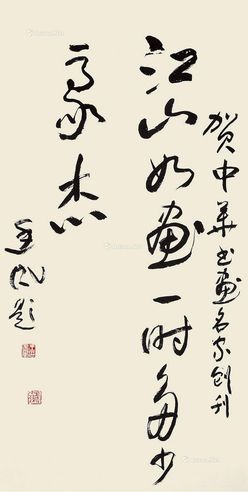 贺中华书画名家创刊
江山如画一时多少
豪杰
题